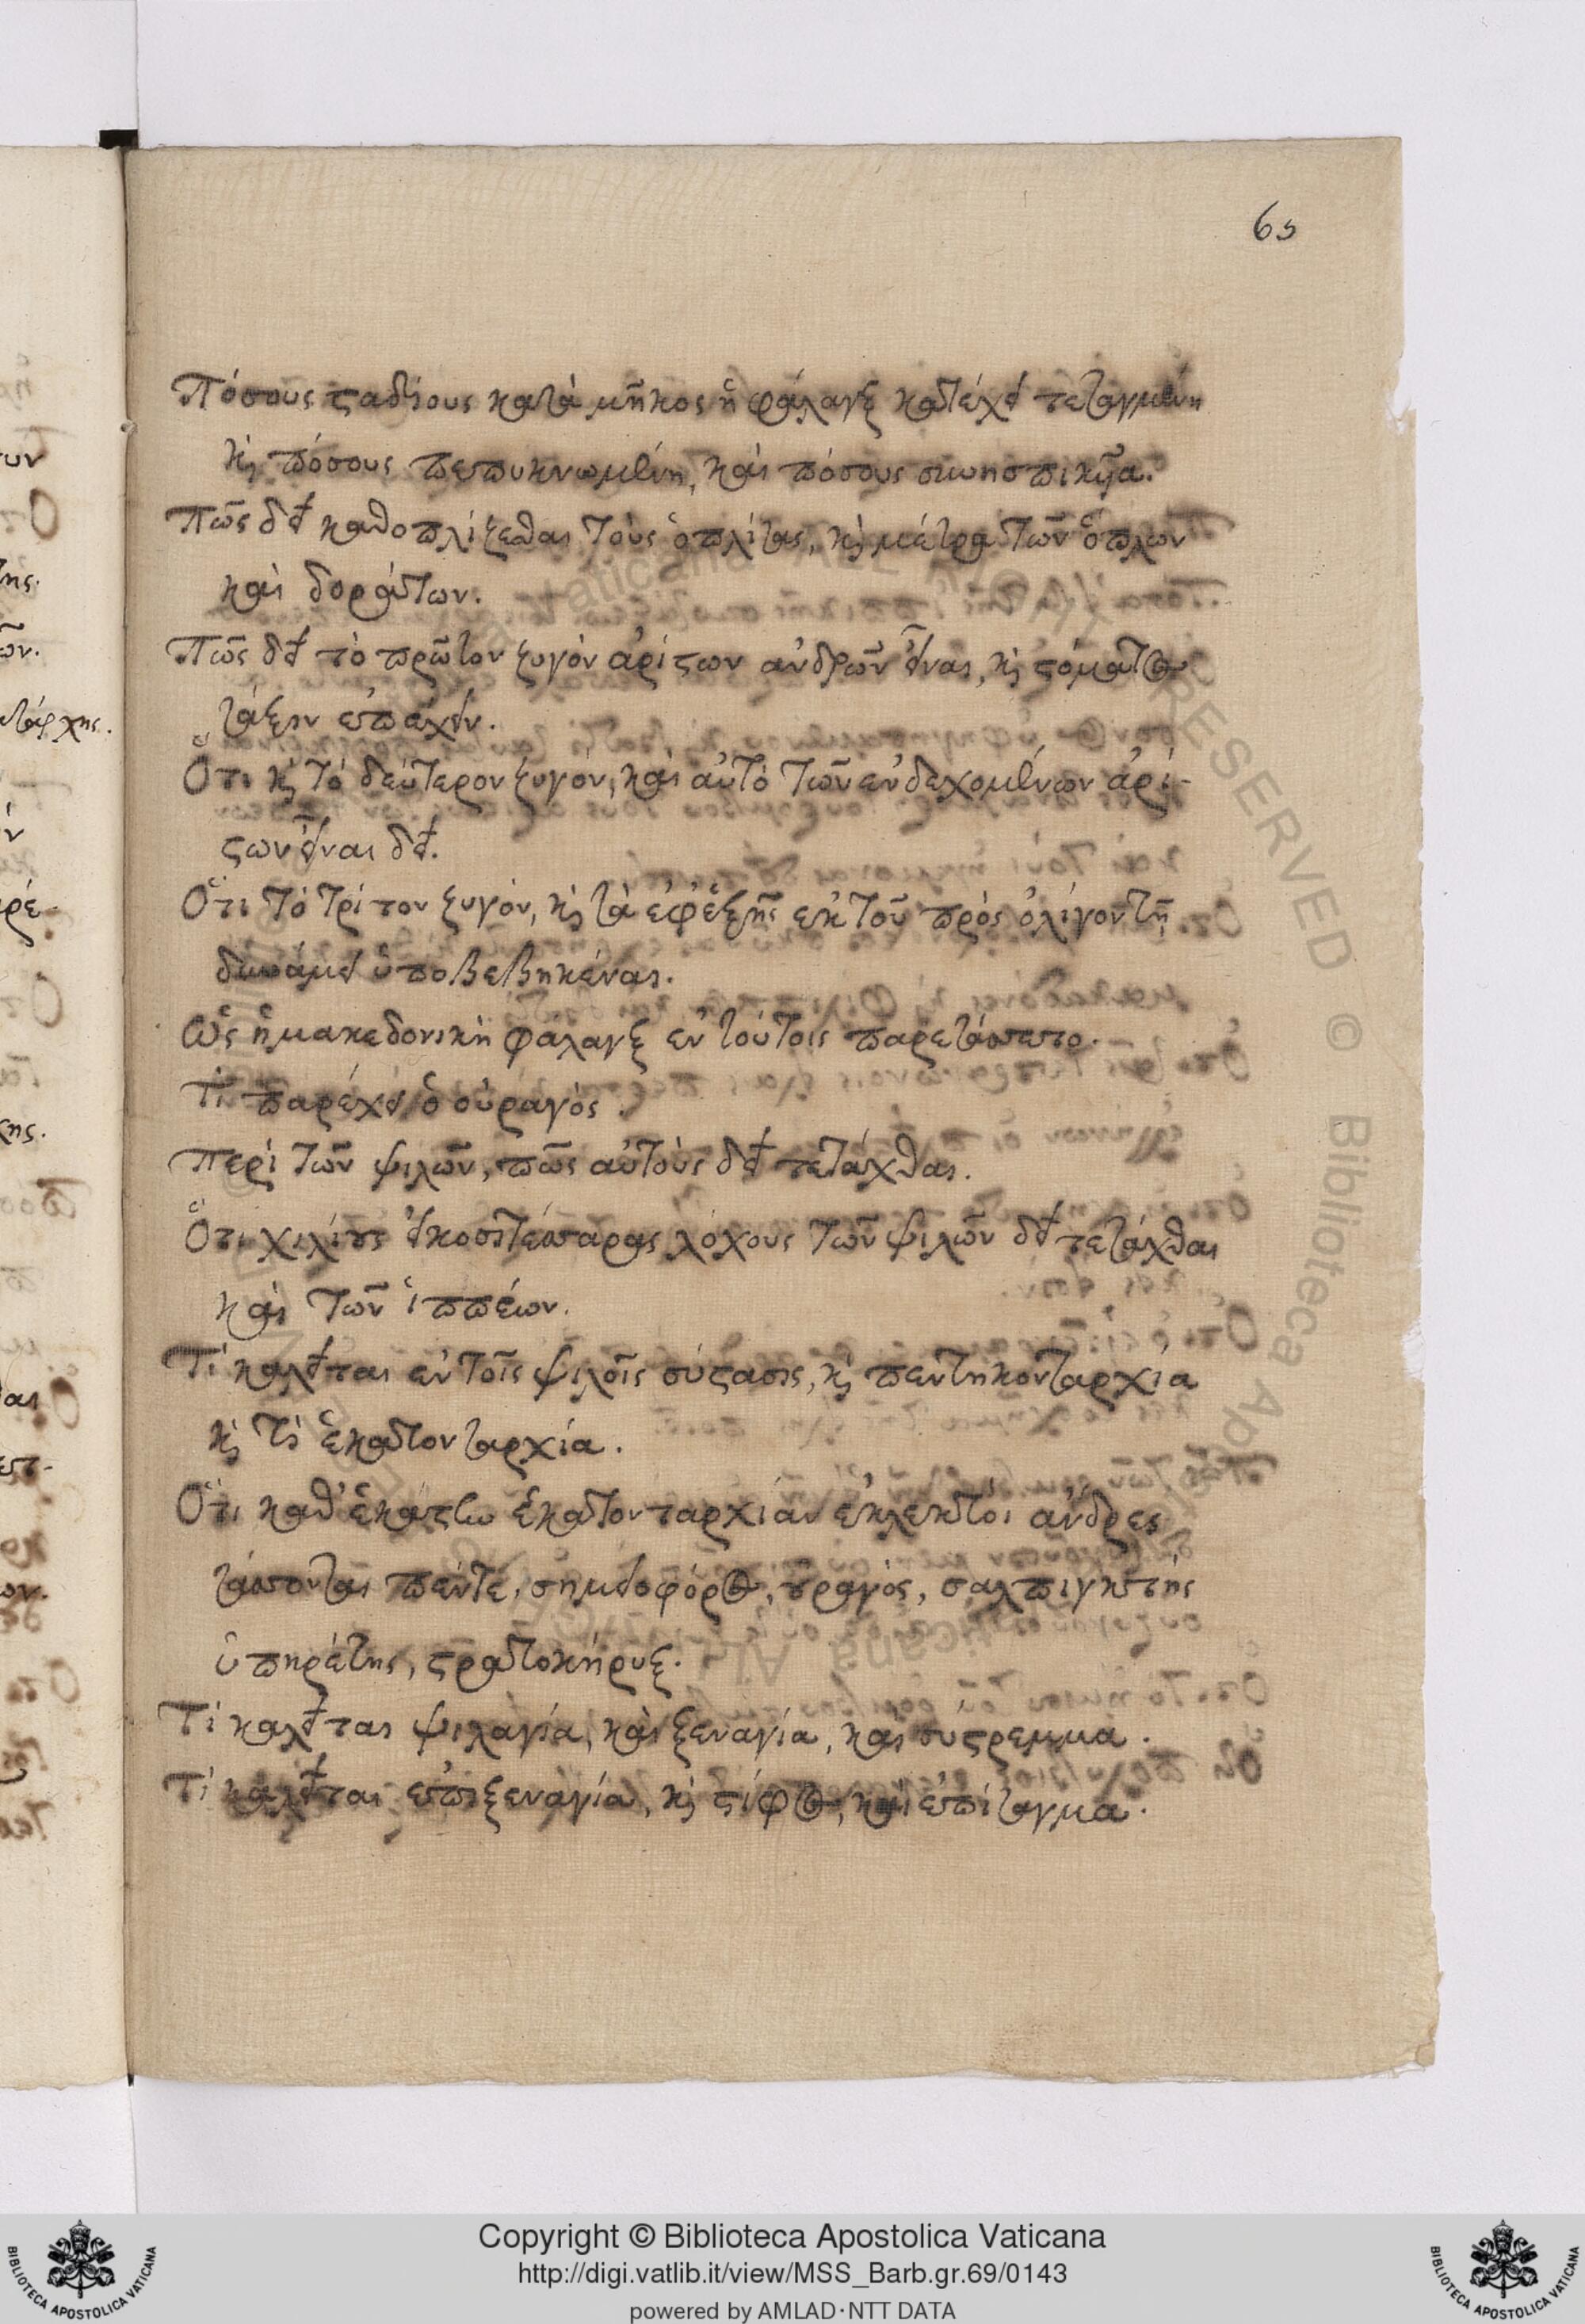 65
Πόσους ςαδίους κατὰ μῆκος ἡ φάλαγξ κατέχει τεταγμένη
κὶ πόσους πεπυκνωμένη, καὶ πόσους συνησπικυῖα.
Πῶς δεῖ καθοπλίζεσθαι τοὺς ὁπλίτας, κὶ μέτρα τῶν ὅπλων
καὶ δοράτων.
Πῶς δεῖ τὸ πρῶτον ζυγὸν ἀρίςων ἀνδρῶν εἶναι, κὶ ςόματος
τάξιν ἐπέχειν.
Ὅτι κὶ τὸ δεύτερον ζυγόν, καὶ αὐτὸ τῶν ἐνδεχομένων ἀρί-
ςων εἶναι δεῖ.
Ὅτι τὸ τρίτον ζυγόν, κὶ τὰ ἐφεξῆς ἐκ τοῦ πρὸς ὀλίγον τῇ
δυνάμει ὑποβεβηκέναι.
Ὡς ἡ μακεδονικὴ φάλαγξ ἐν τούτοις παρετάσσετο.
Τί παρέχει ὁ οὐραγός.
Περὶ τῶν ψιλῶν, πῶς αὐτοὺς δεῖ τετάχθαι.
Ὅτι χιλίους εἰκοσιτέσσαρας λόχους τῶν ψιλῶν δεῖ τετάχθαι
καὶ τῶν ἱππέων.
Τί καλεῖται ἐν τοῖς ψιλοῖς σύςασις, κὶ πεντηκονταρχία
κὶ τί ἑκατονταρχία.
Ὅτι καθ' ἑκάςην ἑκατονταρχίαν ἔκλεκτοι ἄνδρες
τάσσονται πέντε, σημειοφόρος, οὐραγός, σαλπιγκτής
ὑπηρέτης, ςρατοκήρυξ.
Τί καλεῖται ψιλαγία, καὶ ξεναγία, καὶ σύςρεμμα.
Τί καλεῖται ἐπιξεναγία, κὶ ςίφος, καὶ ἐπίταγμα.
Copyright © Biblioteca Apostolica Vaticana
http://digi.vatlib.it/view/MSS_Barb.gr.69/0143
powered by AMLAD·NTT DATA